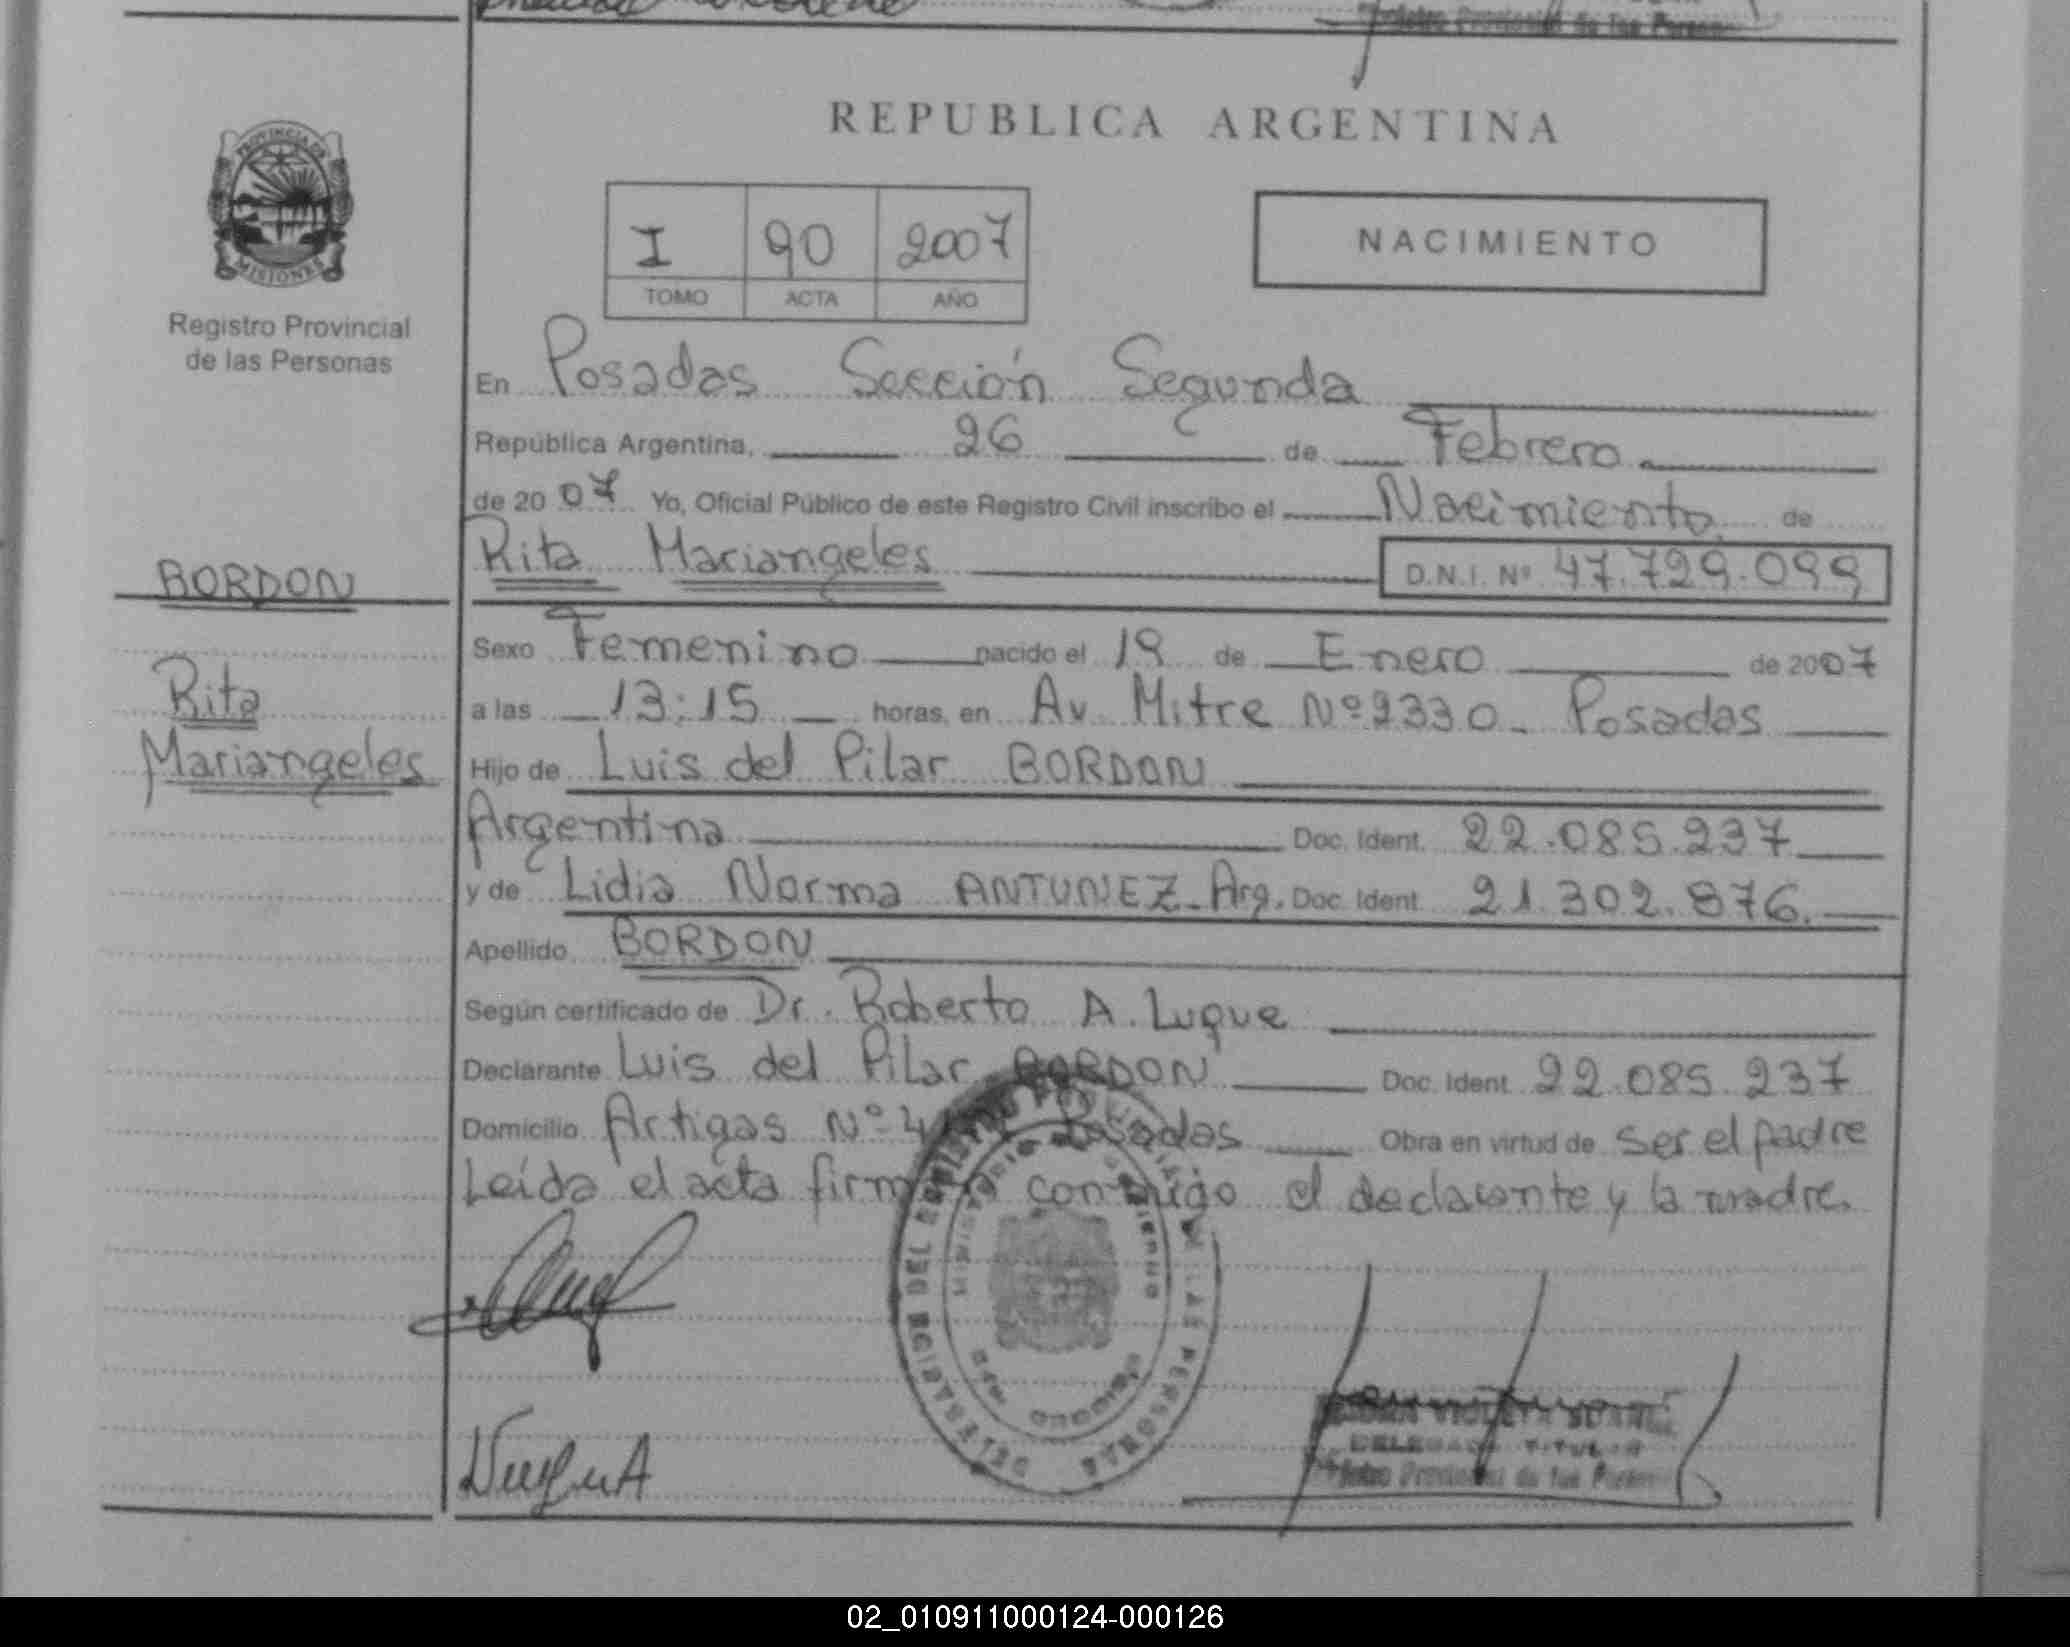 PROVINCIA DE
MISIONES
Registro Provincial
de las Personas
BORDON
Rita
Mariangeles
REPUBLICA ARGENTINA
I 90 2007
TOMO ACTA AÑO
NACIMIENTO
En Posadas Sección Segunda
República Argentina, 26 de Febrero
de 2007 Yo, Oficial Público de este Registro Civil inscribo el Nacimiento de
Rita Mariangeles D.N.I. Nº 47.729.099
Sexo Femenino nacido el 19 de Enero de 2007
a las 13:15 horas, en Av. Mitre Nº 2330 - Posadas
Hijo de Luis del Pilar BORDON
Argentina Doc. Ident. 22.085.237
y de Lidia Norma ANTUNEZ - Arg. Doc. Ident. 21.302.876.
Apellido BORDON
Según certificado de Dr. Roberto A. Luque
Declarante Luis del Pilar BORDON Doc. Ident. 22.085.237
Domicilio Artigas Nº Posadas Obra en virtud de ser el padre
Leída el acta firma conmigo el declarante y la madre.
VIOLETA
DELEGADA TITULAR
Provincial de las
02_010911000124-000126